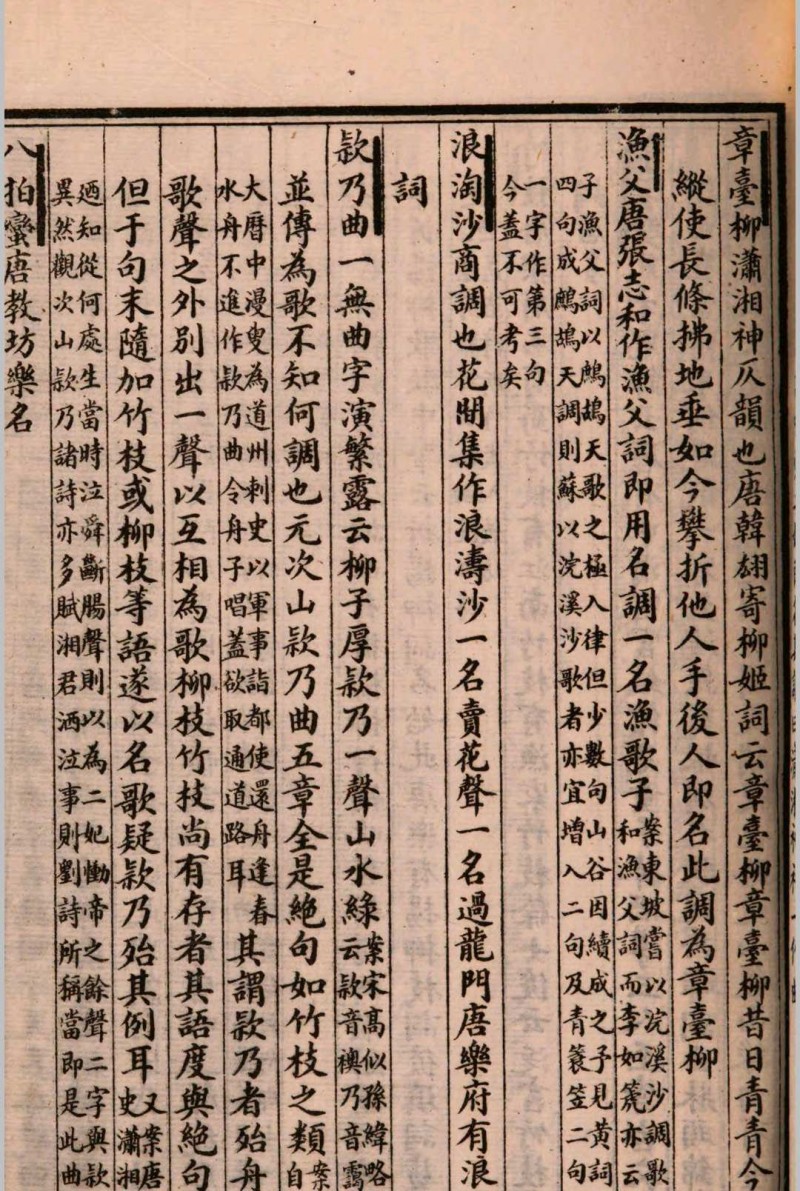 章臺柳瀟湘神仄韻也唐韓翃寄柳姬詞云章臺柳章臺柳昔日青青今
縱使長條拂地垂如今攀折他人手後人即名此調為章臺柳
漁父唐張志和作漁父詞即用名調一名漁歌子
案東坡嘗以浣溪沙調歌
和漁父詞而李如箎亦云
子漁父詞以鷓鴣天歌之極入律但少數句山谷因續成之予見黃詞
四句成鷓鴣天調則蘇以浣溪沙歌者亦宜增入二句及青蒻笠二句
一字作第三句
今蓋不可考矣
浪淘沙商調也花間集作浪濤沙一名賣花聲一名過龍門唐樂府有浪
詞
欵乃曲一無曲字演繁露云柳子厚欵乃一聲山水綠
案宋高似孫緯略
云欵音襖乃音靄
並傳為歌不知何調也元次山欵乃曲五章全是絕句如竹枝之類
案
自
大曆中漫叟為道州刺史以軍事詣都使還舟逢春
水舟不進作欵乃曲令舟子唱蓋欲取通道路耳
其謂欵乃者殆舟
歌聲之外別出一聲以互相為歌柳枝竹枝尚有存者其語度與絕句
但于句末隨加竹枝或柳枝等語遂以名歌疑欵乃殆其例耳
又案唐
史瀟湘
廼知從何處生當時泣舜斷腸聲則以為二妃慟帝之餘聲二字與欵
異然觀次山欵乃諸詩亦多賦湘君洒泣事則劉詩所稱當即是此曲
八拍蠻唐教坊樂名